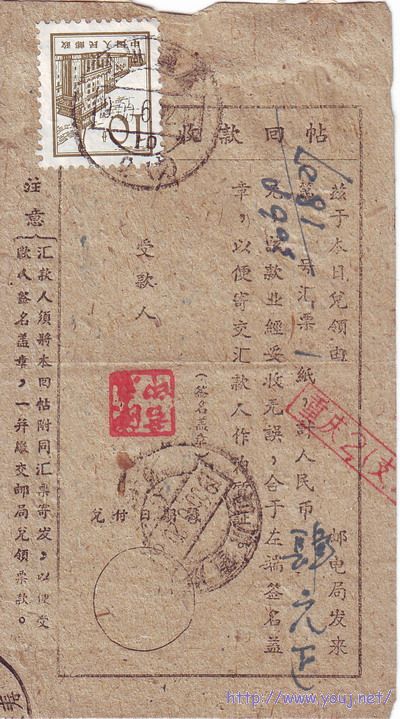 中国人民邮政
10
收款回帖
兹于本日兑领由 邮电局发来
第 号汇票 1 纸,计人民币 肆元正
款业经妥收无误,合于左端签名盖
章,以便寄交汇款人作
受款人
(签名盖章)
兑付日
重庆2(支
注意
汇款人须將本回帖附同汇票寄发,以便受
款人签名盖章,一并繳交邮局兑領票款。
http://www.youj.net/